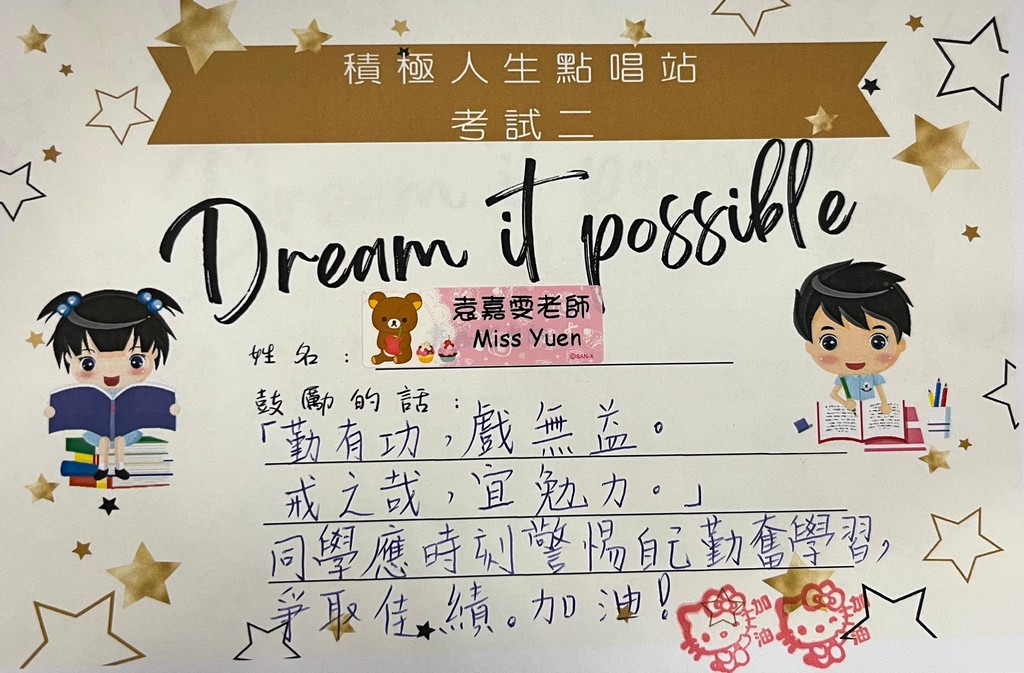 積極人生點唱站
考試二
Dream it possible
袁嘉雯老師
Miss Yuen
©SAN-X
姓名：
鼓勵的話：
「勤有功，戲無益。
戒之哉，宜勉力。」
同學應時刻警惕自己勤奮學習，
爭取佳績。加油！
加油
加油